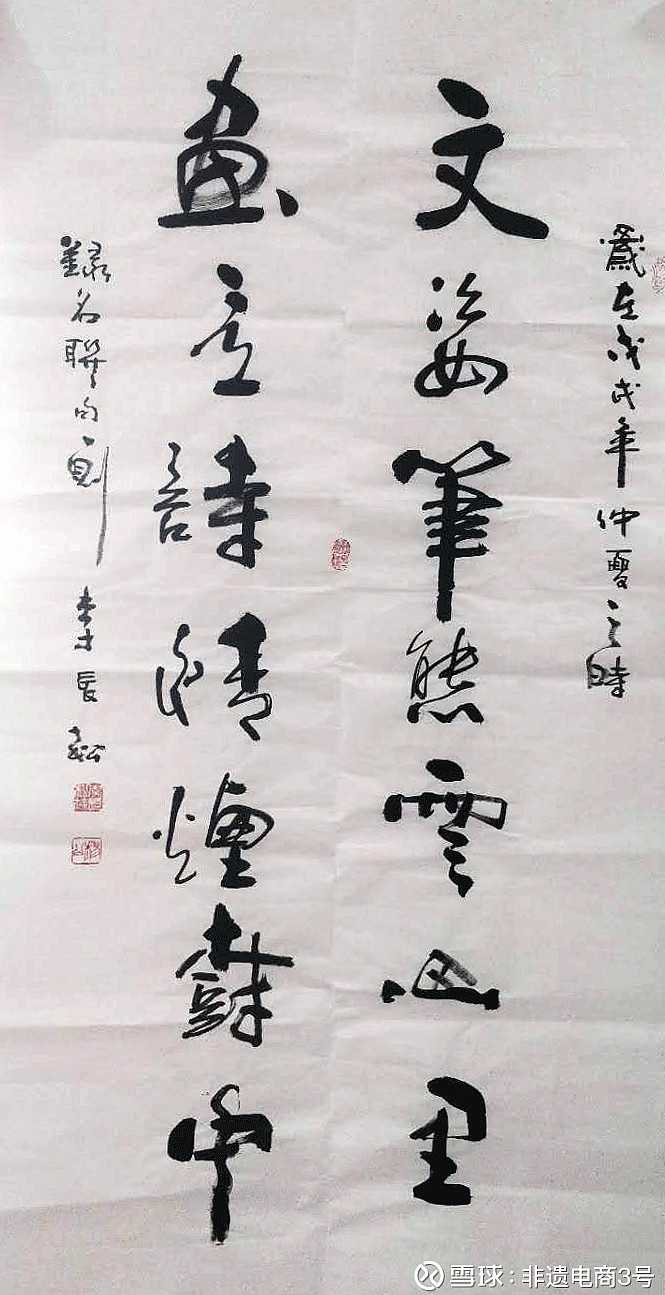 歲在戊戌年仲夏之時
文姿筆態雲山里
畫意詩情煙樹中
錄名聯句一則 李長松
雪球：非遗电商3号